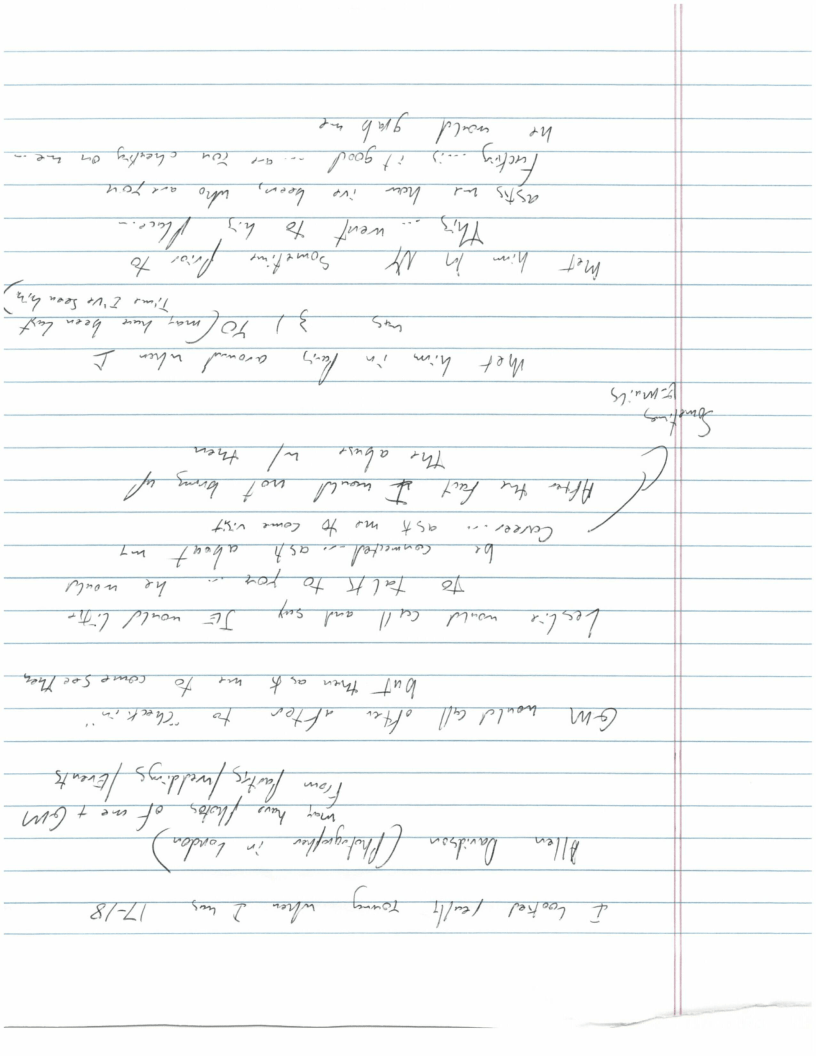 I looked really young when I was 17-18
Allen Davidson (Photographer in London)
may have photos of me + GM
From parties/weddings/Events
GM would call often after to "check in"
but then ask me to come see them
Leslie would call and say JE would like
to talk to you ... he would
be connected ... ask about my
Career ... ask me to come visit
After the fact I would not bring up
the abuse w/ them
Sometimes
E-mails
Met him in Paris around when I
was 31 YO (may have been last
Time I've seen him)
Met him in NY Sometime prior to
This ... went to his place ...
asks me how i've been, who are you
Fucking ... is it good ... are you cheating on me ...
he would grab me